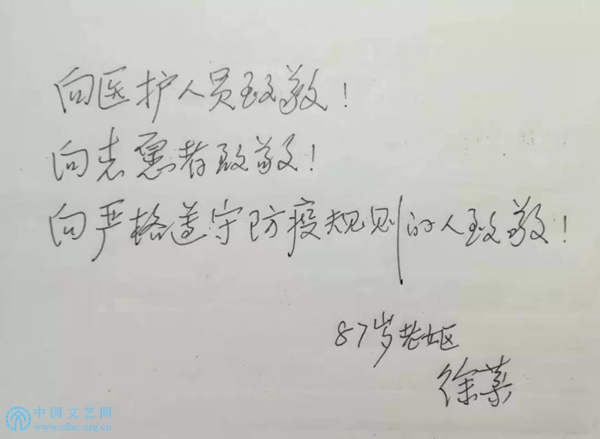 向医护人员致敬!
向志愿者致敬!
向严格遵守防疫规则的人致敬!
87岁老妪
徐棻
中国文艺网
www.cflac.org.cn